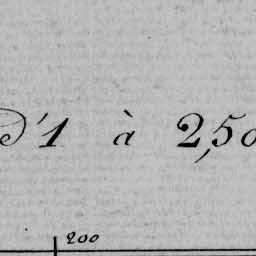 d'1 à 2,50
200